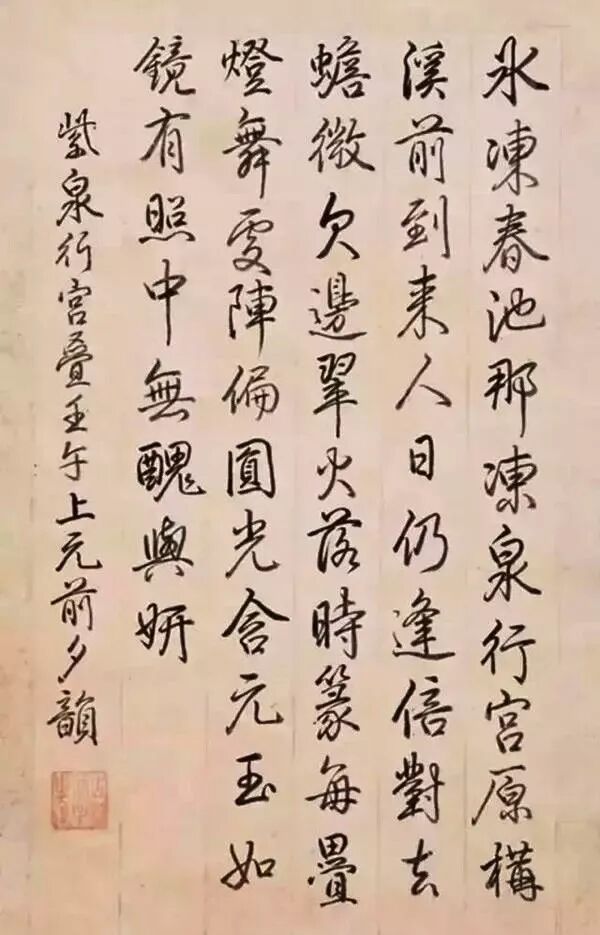 氷凍春池那凍泉行宮原構
溪前到来人日仍逢倍對去
蟾微欠邊火落時篆每疊
燈舞陣偏圓光含元玉如
鏡有照中無醜與妍
紫泉行宮叠壬午上元前夕韻